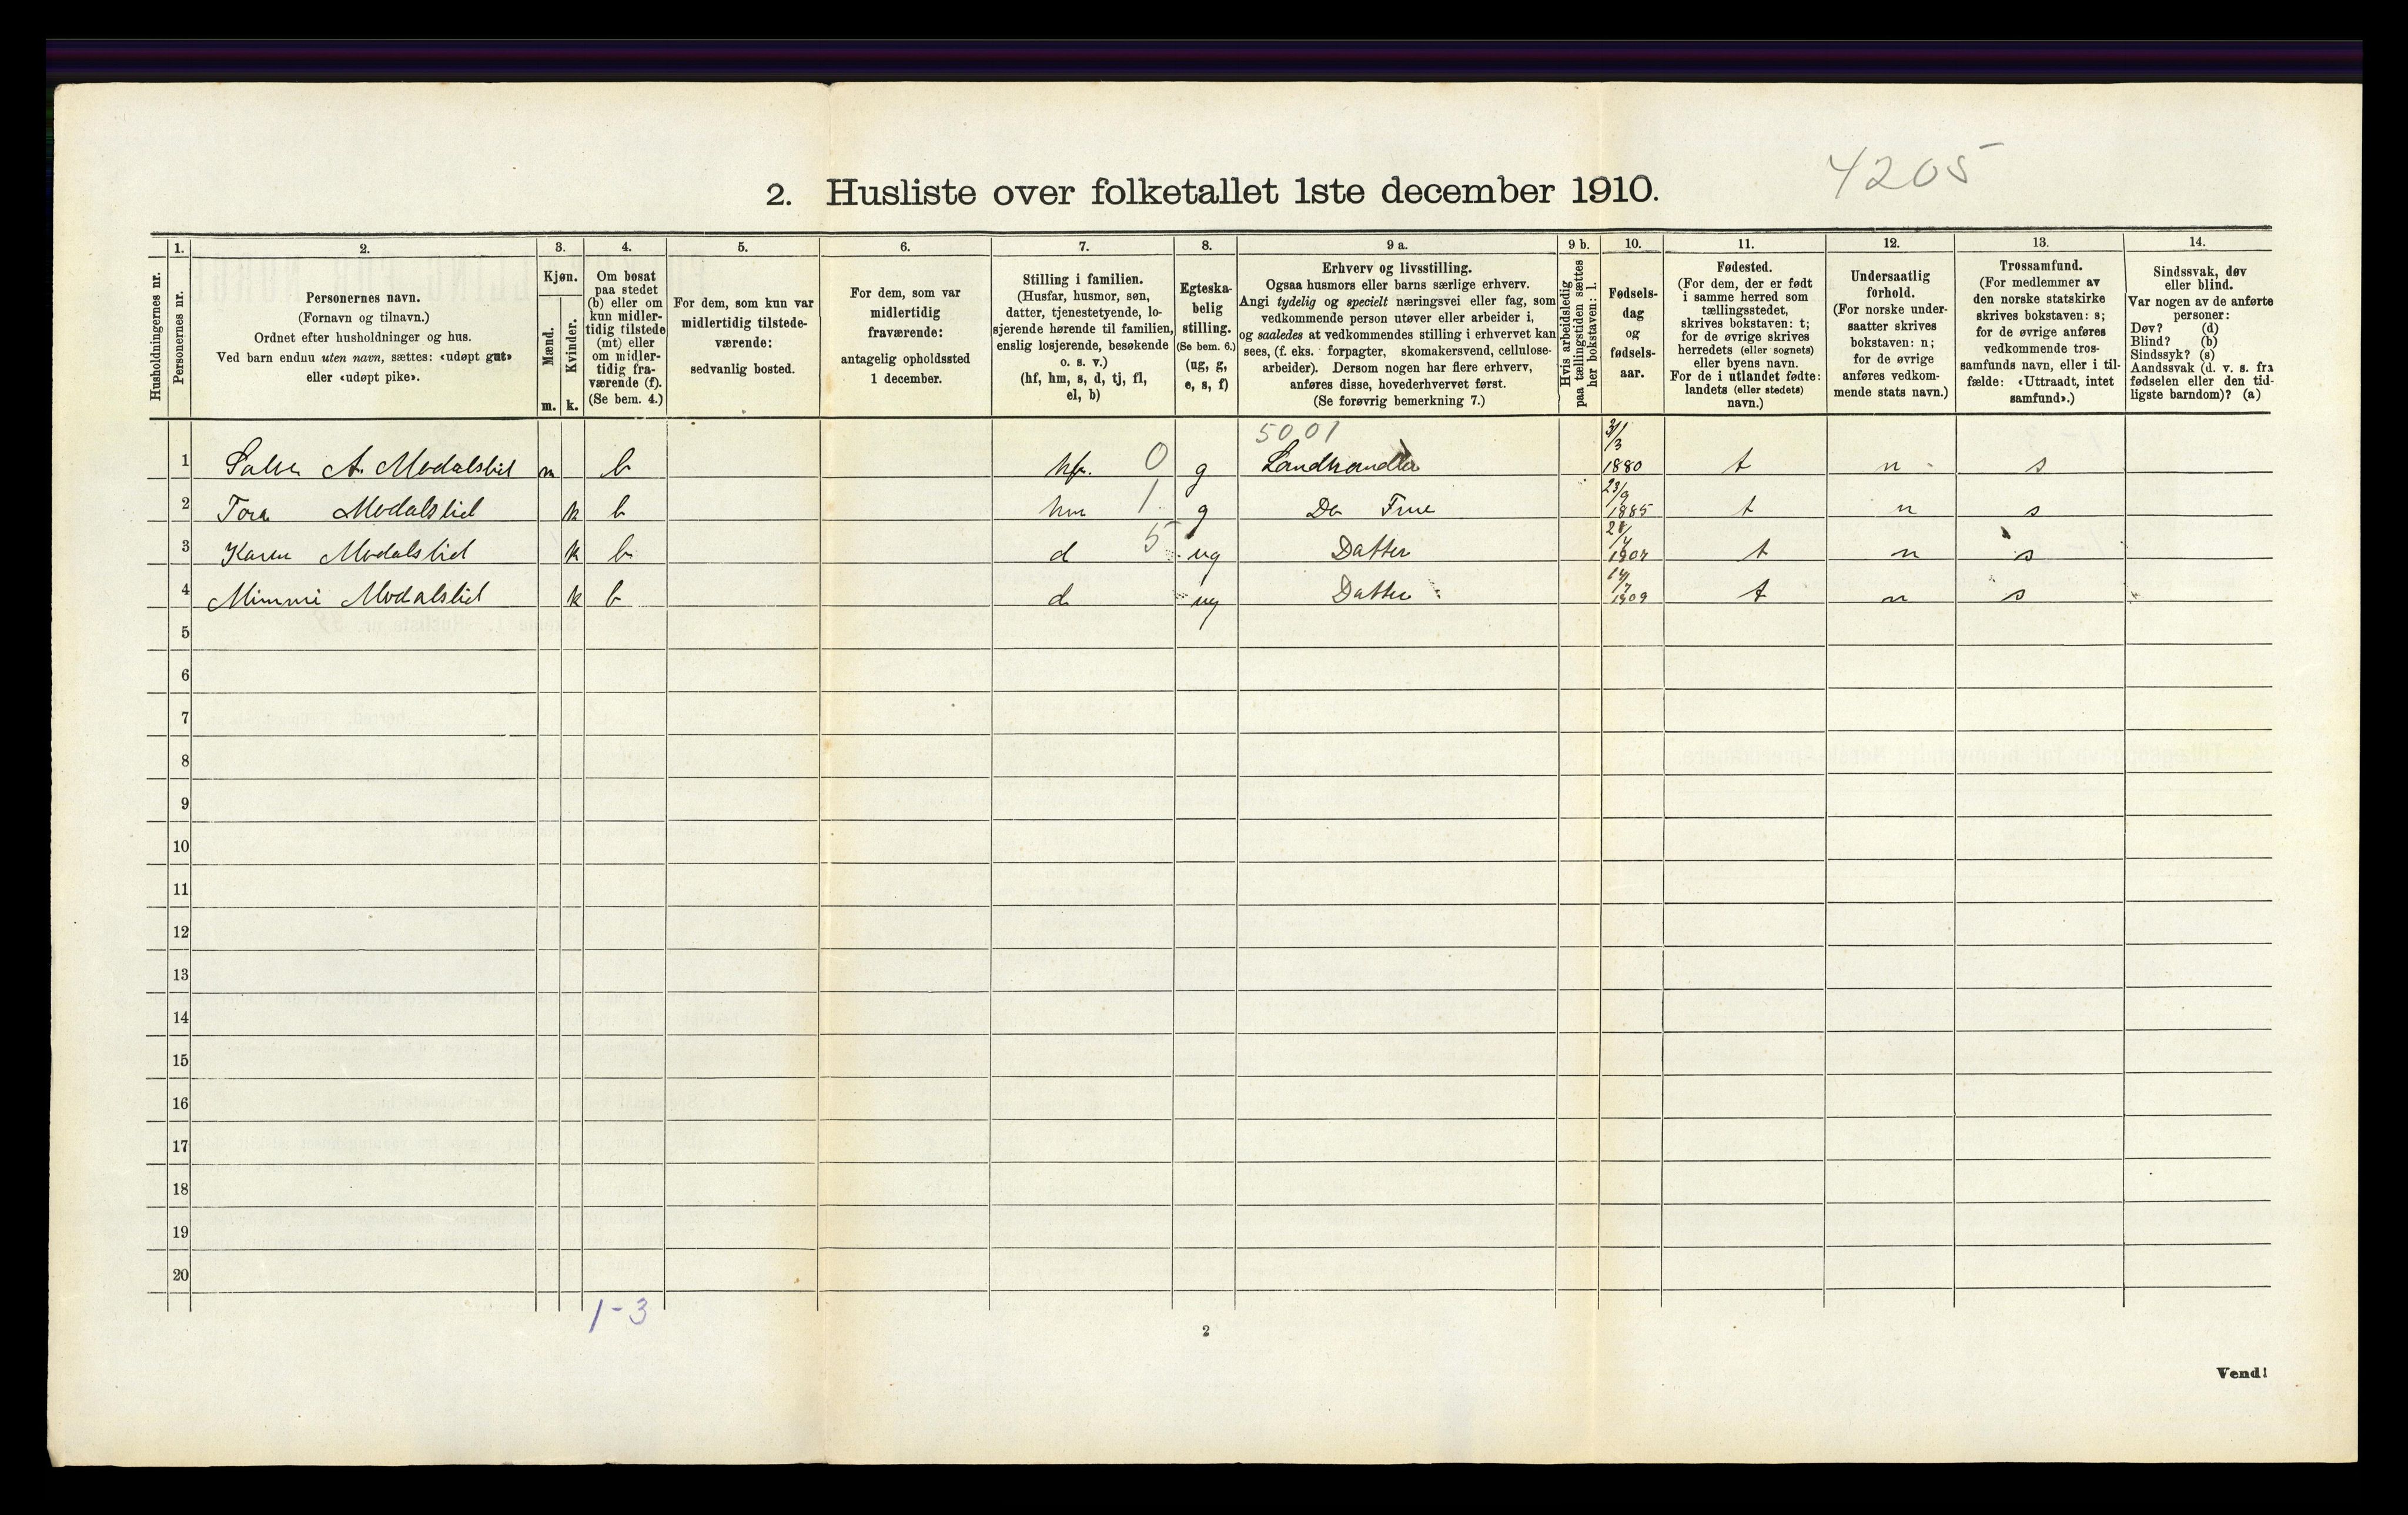 4205
2. Husliste over folketallet 1ste december 1910.
Husholdningernes nr.
1.
Personernes nr.
2.
Personernes navn.
(Fornavn og tilnavn.)
Ordnet efter husholdninger og hus.
Ved barn endnu uten navn, sættes: «udøpt gut»
eller «udøpt pike».
3.
Kjøn.
Mænd.
Kvinder.
m. k.
4.
Om bosat
paa stedet
(b) eller om
kun midler-
tidig tilstede
(mt) eller
om midler-
tidig fra-
værende (f).
(Se bem. 4.)
5.
For dem, som kun var
midlertidig tilstede-
værende:
sedvanlig bosted.
6.
For dem, som var
midlertidig
fraværende:
antagelig opholdssted
1 december.
7.
Stilling i familien.
(Husfar, husmor, søn,
datter, tjenestetyende, lo-
sjerende hørende til familien,
enslig losjerende, besøkende
o. s. v.)
(hf, hm, s, d, tj, fl,
el, b)
8.
Egteska-
belig
stilling.
(Se bem. 6.)
(ug, g,
e, s, f)
9 a.
Erhverv og livsstilling.
Ogsaa husmors eller barns særlige erhverv.
Angi tydelig og specielt næringsvei eller fag, som
vedkommende person utøver eller arbeider i,
og saaledes at vedkommendes stilling i erhvervet kan
sees, (f. eks. forpagter, skomakersvend, cellulose-
arbeider). Dersom nogen har flere erhverv,
anføres disse, hovederhvervet først.
(Se forøvrig bemerkning 7.)
9 b.
Hvis arbeidsledig
paa tællingstiden sættes
her bokstaven: l.
10.
Fødsels-
dag
og
fødsels-
aar.
11.
Fødested.
(For dem, der er født
i samme herred som
tællingsstedet,
skrives bokstaven: t;
for de øvrige skrives
herredets (eller sognets)
eller byens navn.
For de i utlandet fødte:
landets (eller stedets)
navn.)
12.
Undersaatlig
forhold.
(For norske under-
saatter skrives
bokstaven: n;
for de øvrige
anføres vedkom-
mende stats navn.)
13.
Trossamfund.
(For medlemmer av
den norske statskirke
skrives bokstaven: s;
for de øvrige anføres
vedkommende tros-
samfunds navn, eller i til-
fælde: «Uttraadt, intet
samfund».)
14.
Sindssvak, døv
eller blind.
Var nogen av de anførte
personer:
Døv? (d)
Blind? (b)
Sindssyk? (s)
Aandssvak (d. v. s. fra
fødselen eller den tid-
ligste barndom)? (a)
5001
1 A. Modalslid m b hf. 0 g Landhandler 31/3 1880 t n s
2 Tora Modalslid k b hm 1 g Do Frue 23/9 1885 t n s
3 Karen Modalslid k b d 5 ug Datter t n s
4 Mimmi Modalslid k b d ug Datter 1909 t n s
5
6
7
8
9
10
11
12
13
14
15
16
17
18
19
20
1-3
2
Vend!